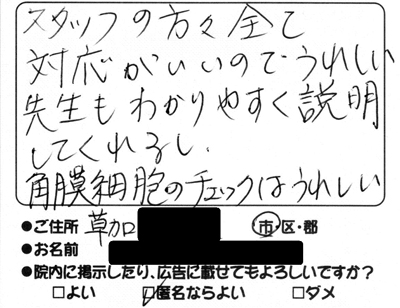 スタッフの方々全て
対応がいいのでうれしい
先生もわかりやすく説明
してくれるし、
角膜細胞のチェックはうれしい
●ご住所 草加 市・区・郡
●お名前
●院内に掲示したり、広告に載せてもよろしいですか?
□よい □匿名ならよい □ダメ